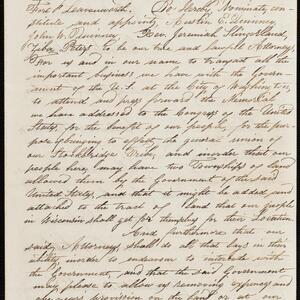 Fort Leavenworth. Do hereby Nominate, con-
stitute and appoint, Austin E. Quinney,
John W. Quinney, Rev. Jeremiah Slingerland,
Ziba Peters to be our true and lawful Attorney
For us and in our name to transact all the
important business we have with the Govern-
ment of the U.S. at the City of Washington,
to attend and press forward the Memorial
we have addressed to the Congress of the United
States, for the benefit of our people, for the pur-
pose of bringing to effect, the general reunion of
our Stockbridge Tribe, and in order that our
people here, may have two Townships of land
allowed them by the Government of the said
United States, and that it might be added, and
attached to the tract of land that our people
in Wisconsin shall get for themselves for their Location
And furthermore that our
said Attorneys, shall do all that lays in their
ability, in order to endeavor to intercede with
the Government, and that the said Government
may please to allow us removing expenses and
one years provision on the land